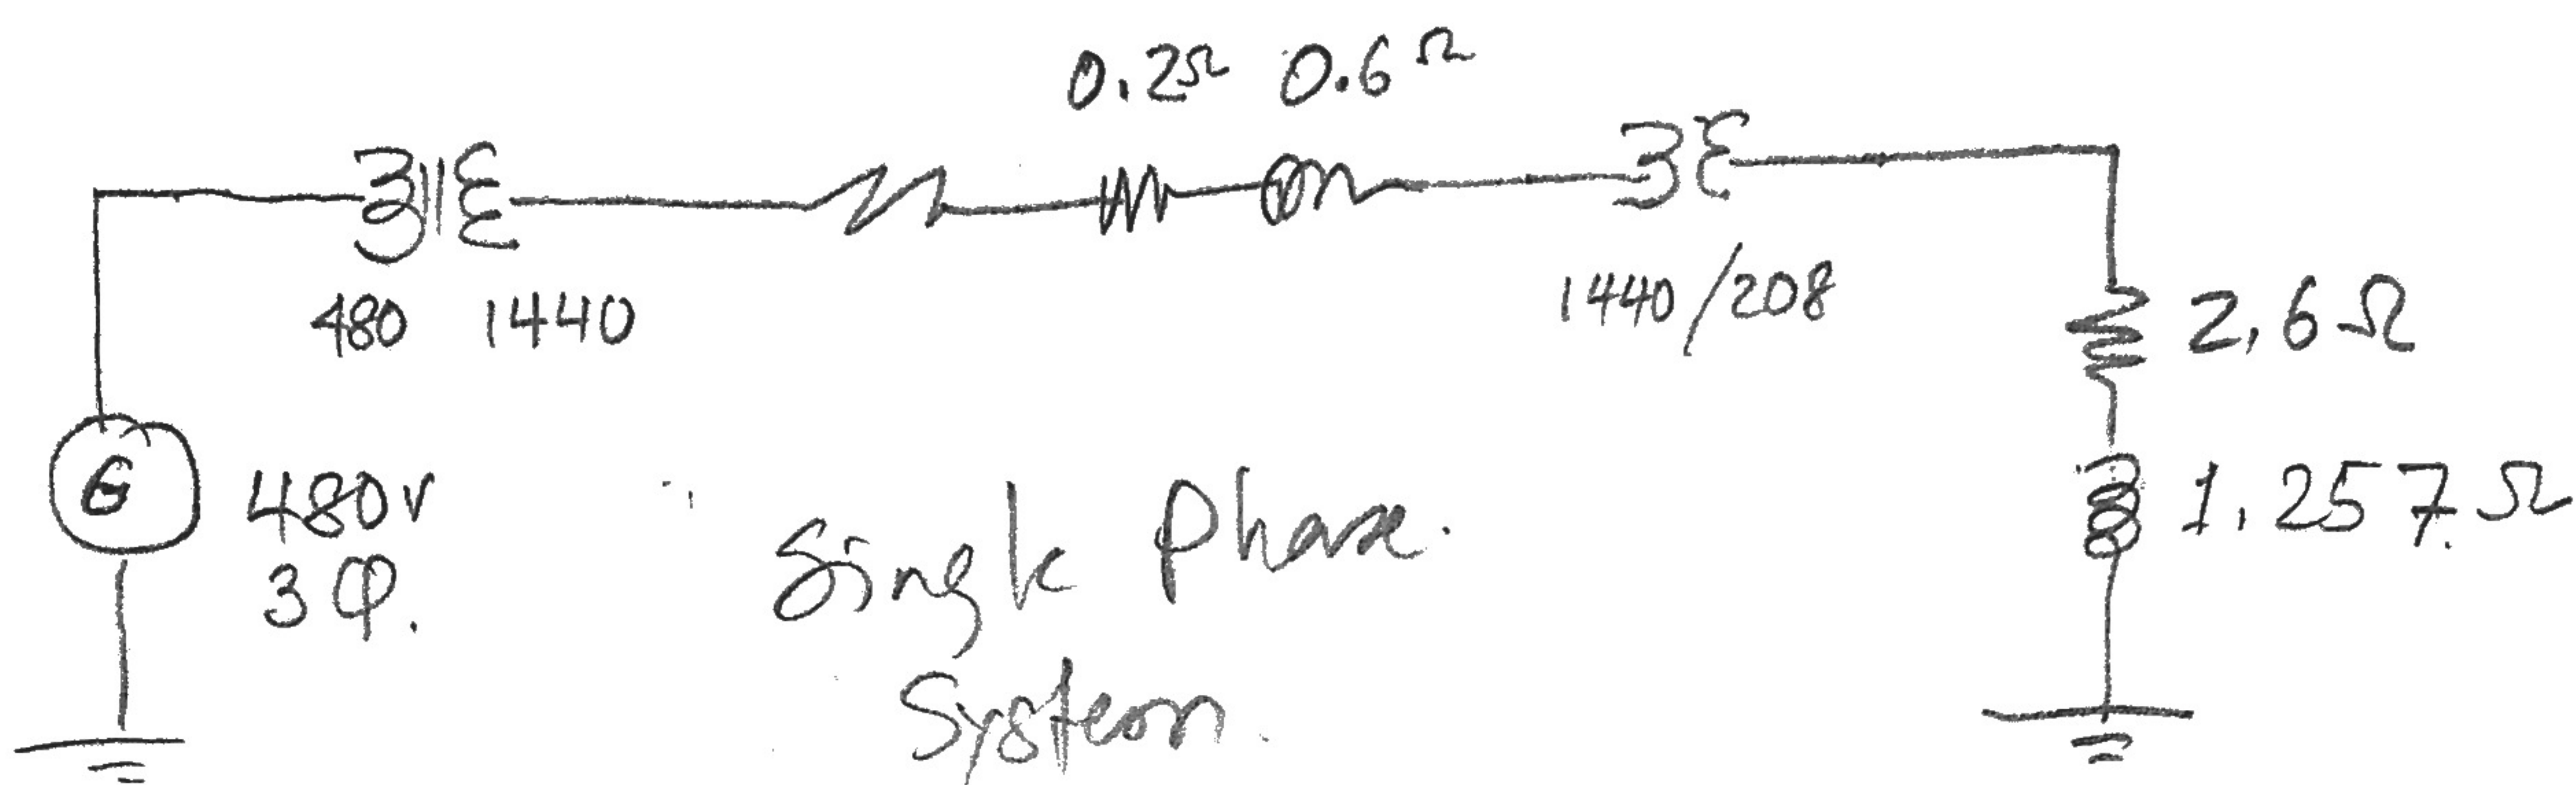 0.2Ω 0.6Ω
480 1440
1440/208
2.6Ω
G
480v
3φ.
1.257Ω
Single Phase.
System.